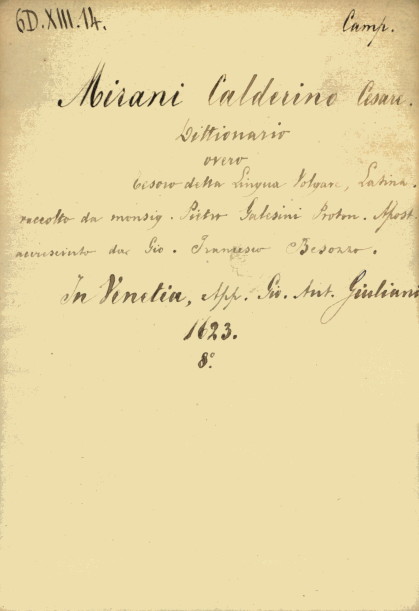 6D.XIII.14.
Camp.
Mirani Calderino Cesare.
Dittionario
overo
tesoro della Lingua Volgare, Latina.
raccolto da monsig. Pietro Galesini Proton. Apost.
accresciuto da Gio. Francesco Besozzo.
In Venetia, App. Gio. Ant. Giuliani
1623.
8.°